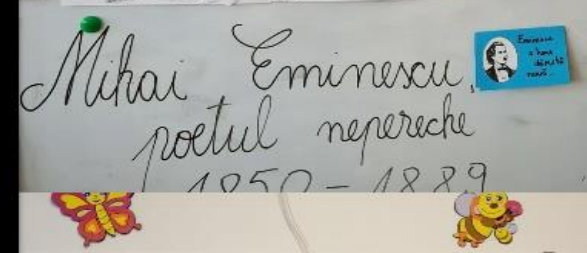 Mihai Eminescu,
poetul nepereche
1850-1889
Eminescu